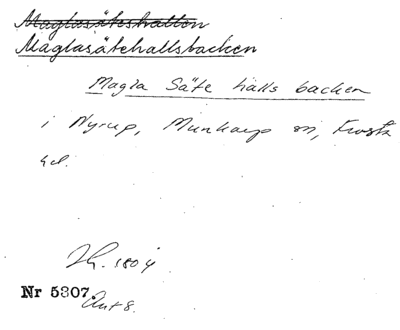 Maglasäteshallen
Maglasätehallsbacken
Magla Säte halls backen
i Nyrup, Munkarp sn, Frosta
hd.
1804
Nr 5307
Akt 8.